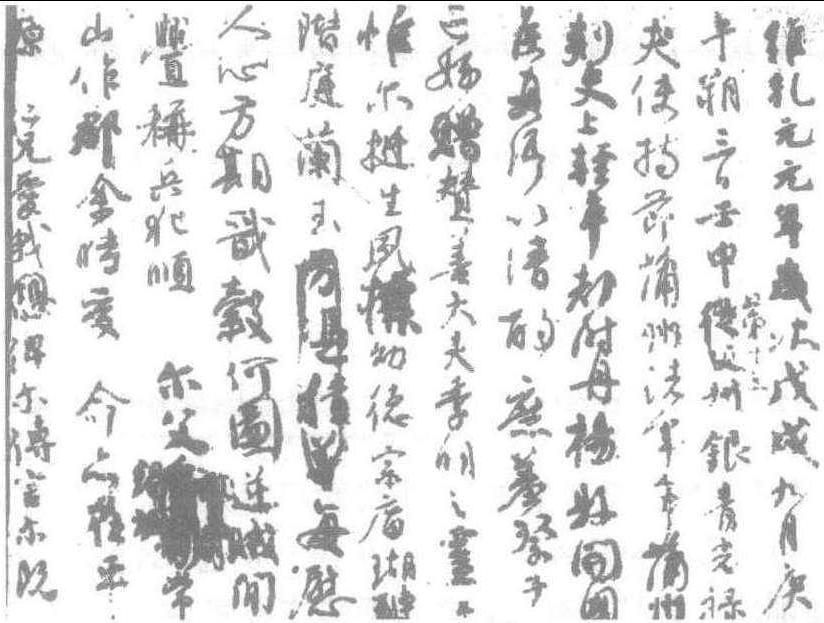 維乾元元年歲次戊戌九月庚
午朔三日壬申第十三從父叔銀青光祿
夫使持節蒲州諸軍事蒲州
刺史上輕車都尉丹楊縣開國
侯真卿以清酌庶羞祭于
亡姪贈贊善大夫季明之靈曰
惟爾挺生夙標幼德宗廟瑚璉
階庭蘭玉方憑積善每慰
人心方期戩穀何圖逆賊閒
釁稱兵犯順爾父常
山作郡余時受命亦在平
原仁兄愛我恐俾爾傳言爾既